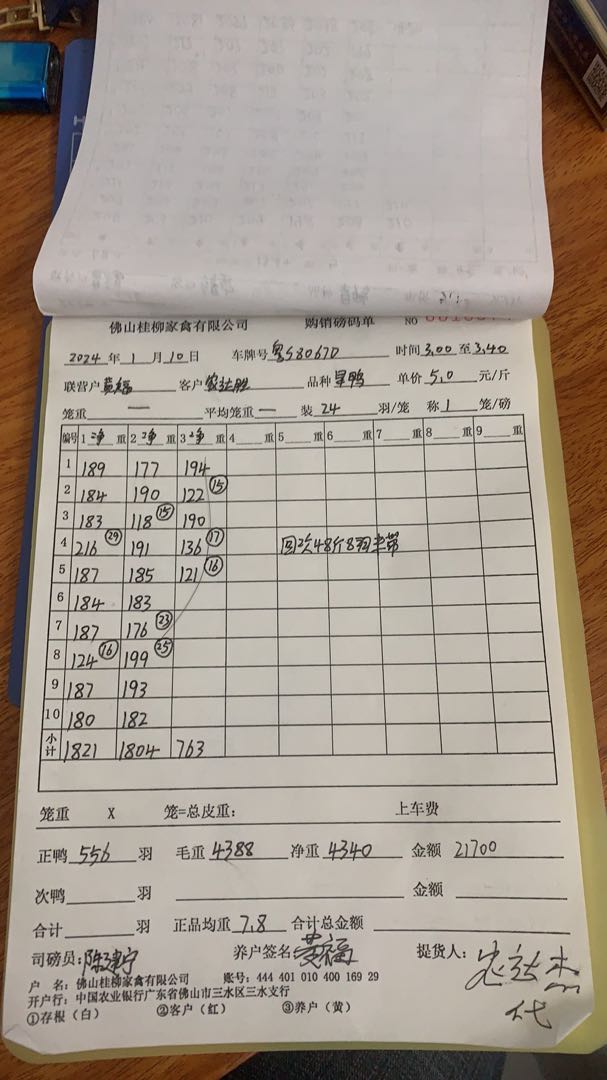 佛山桂柳家禽有限公司 购销磅码单 NO
2024 年 1 月 10 日 车牌号 粤S8067D 时间 3,00 至 3,40
联营户 黄福 客户 品种 旱鸭 单价 5,0 元/斤
笼重 一 平均笼重 一 装 24 羽/笼 称 1 笼/磅
编号 1 净 重 2 净 重 3 净 重 4 重 5 重 6 重 7 重 8 重 9 重
1 189 177 194
2 184 190 122 ⑮
3 183 118 ⑮ 190
4 216 ㉙ 191 136 ⑰ 回欠48斤8羽半带
5 187 185 121 ⑯
6 184 183
7 187 176 ㉓
8 124 ⑯ 199 ㉕
9 187 193
10 180 182
小计 1821 1804 763
笼重 X 笼=总皮重: 上车费
正鸭 556 羽 毛重 4388 净重 4340 金额 21700
次鸭 羽 金额
合计 羽 正品均重 7,8 合计总金额
司磅员: 陈建宁 养户签名 黄福 提货人:
代
户 名: 佛山桂柳家禽有限公司 账号: 444 401 010 400 169 29
开户行: 中国农业银行广东省佛山市三水区三水支行
①存根（白） ②客户（红） ③养户（黄）